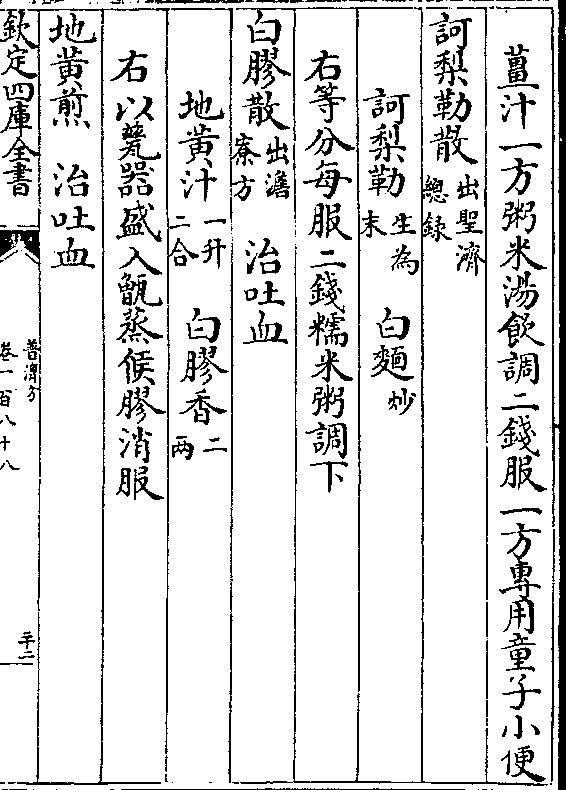 薑汁一方粥米湯飲調二錢服一方專用童子小便
訶梨勒散出聖濟總錄
訶梨勒生為末　白麵炒
右等分每服二錢糯米粥調下
白膠散出澹寮方　治吐血
地黃汁一升二合　白膠香二两
右以甆器盛入甑蒸候膠消服
地黃煎　治吐血
欽定四庫全書
普濟方
卷一百八十八